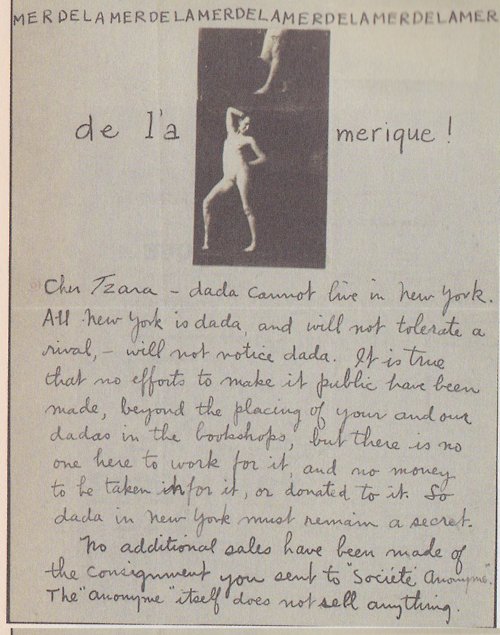 MERDELAMERDELAMERDELAMERDELAMERDELAMER
de l'a merique!
Cher Tzara - dada cannot live in New York.
All New York is dada, and will not tolerate a
rival, - will not notice dada. It is true
that no efforts to make it public have been
made, beyond the placing of your and our
dadas in the bookshops, but there is no
one here to work for it, and no money
to be taken in for it, or donated to it. So
dada in New York must remain a secret.
No additional sales have been made of
the consignment you sent to "Société Anonyme".
The "anonyme" itself does not sell anything.